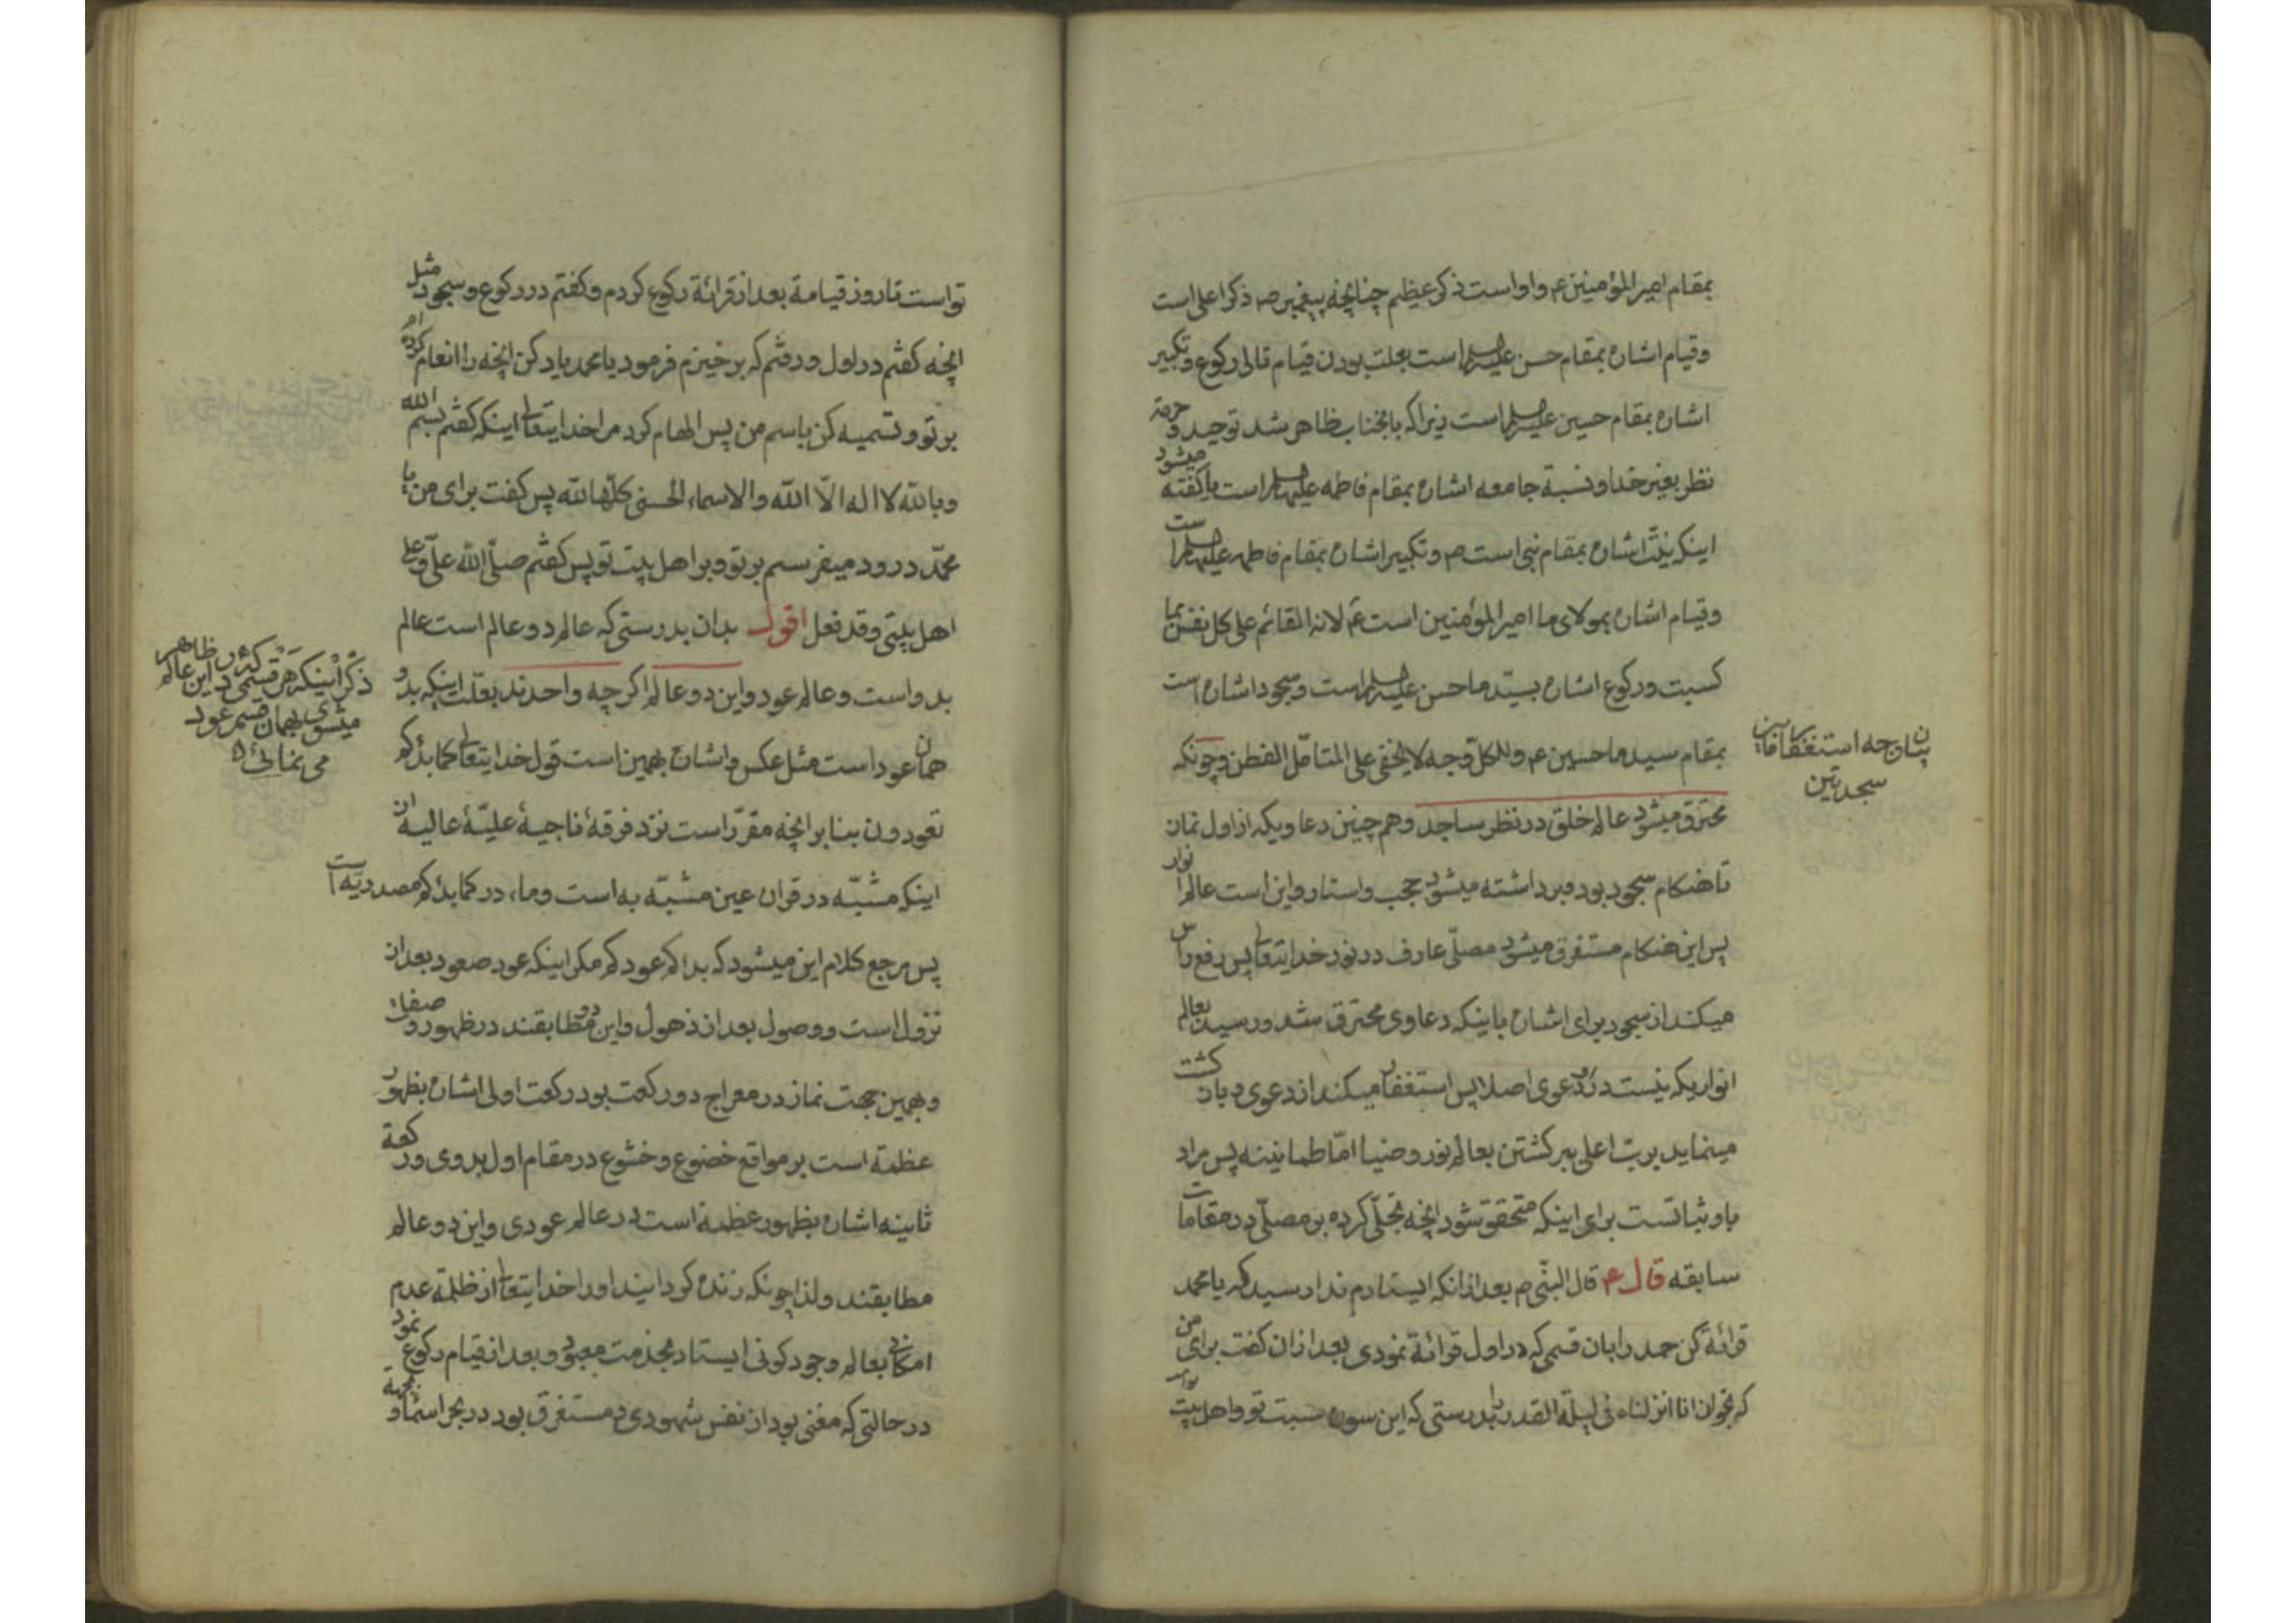 بمقام امیر المؤمنین ع و او است ذکر عظیم چنانچه پیغمبر ص ذکر اعلی است
وقیام اشاره بمقام حسن علیه السلام است بعلت بودن قیام تالی رکوع و تکبیر
اشاره بمقام حسین علیه السلام است زیرا که بانجناب ظاهر شد توحید و حرمة
نظر بغیر خدا و نسبة جامعه اشاره بمقام فاطمه علیها السلام است یا کفته میشود
اینکه نیّت اشاره بمقام نبی است ص و تکبیر اشاره بمقام فاطمه علیها السلام است
وقیام اشاره بمولای ما امیر المؤمنین است ع لانه القائم علی کل نفس بما
کسبت ورکوع اشاره بسیّد ما حسن علیه السلام است وسجود اشاره است
بمقام سید ما حسین ع وللکلّ وجه لا یخفی علی المتامّل الفطن وچونکه
بیان وجه استغفار مابین
سجدتین
محترق میشود عالم خلق در نظر ساجد وهم چنین دعاویکه از اول نماز
تا هنکام سجود بود وبرداشته میشود حجب واستار واین است عالم انوار
پس این هنکام مستغرق میشود مصلّی عارف در نور خدایتعالی پس رفع راس
میکند از سجود برای اشاره باینکه دعاوی محترق شد ورسید بعالم
انواریکه نیست در او دعوی اصلا پس استغفار میکند از دعوی وباز کشت
مینماید بربّ اعلی ببرکشتن بعالم نور وضیا امّا طمانینه پس مراد
باو ثباتست برای اینکه متحقق شود انچه تجلّی کرده بر مصلّی در مقامات
سابقه قال ع قال النبّی ص بعد از انکه ایستادم ندا رسید که یا محمد
قرائة کن حمد را بان قسمی که در اول قرائة نمودی بعد از ان کفت برای من
که بخوان انا انزلناه فی لیلة القدر را بدرستی که این سوره نسبت تو واهل بیت
تو است تا روز قیامة بعد از قرائة رکوع کردم وکفتم در رکوع وسجود مثل
انچه کفتم در اول ورفتم که برخیزم فرمود یا محمد یاد کن انچه را انعام کرده ام
بر تو وتسمیه کن باسم من پس الهام کرد مرا خدایتعالی اینکه کفتم بسم الله
وبالله لا اله الّا الله والاسماء الحسنی کلّها لله پس کفت برای من یا
محمّد درود میفرستم بر تو وبر اهل بیت تو پس کفتم صلّی الله علیّ وعلی
اهل بیتی وقد فعل اقول بدان بدرستی که عالم دو عالم است عالم
بدو است وعالم عود واین دو عالم اکرچه واحدند بعلّت اینکه بدو
ذکر اینکه هر قسمی که در ظاهر این عالم
میشوی بهمان قسم عود
می نمائی
همان عود است مثل عکس واشاره بهمین است قول خدایتعالی کما بدئکم
تعودون بنا بر انچه مقرّر است نزد فرقهٔ ناجیهٔ علیّهٔ عالیه از
اینکه مشبّه در قران عین مشبّه به است وما، در کما بدئکم مصدریّه است
پس مرجع کلام این میشود که بداکم عودکم مکر اینکه عود صعود بعد از
نزول است ووصول بعد از ذهول واین دو مطابقند در ظهور وصفات
وبهمین جهت نماز در معراج دو رکعت بود رکعت اولی اشاره بظهور
عظمة است بر مواقع خضوع وخشوع در مقام اول بدوی ورکعة
ثانیه اشاره بظهور عظمة است در عالم عودی واین دو عالم
مطابقند ولذا چونکه زنده کردانید او را خدایتعالی از ظلمة عدم
امکانی بعالم وجود کونی ایستاد بخدمت معبود وبعد از قیام رکوع نمود
در حالتی که مغنی بود از نفس شهودی ومستغرق بود در بحر اسماء و